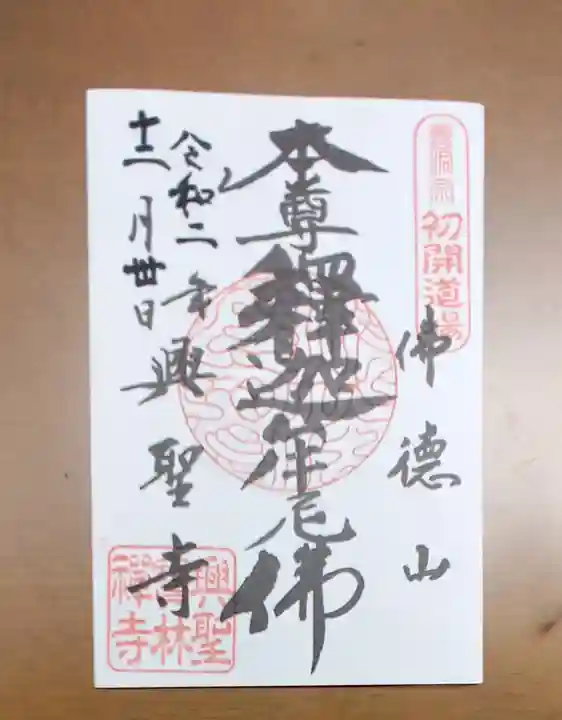 曹洞宗
初開道場
佛德山
本尊釋迦牟尼佛
令和二年
十二月卅日
興聖寺
興聖
寶林
禪寺